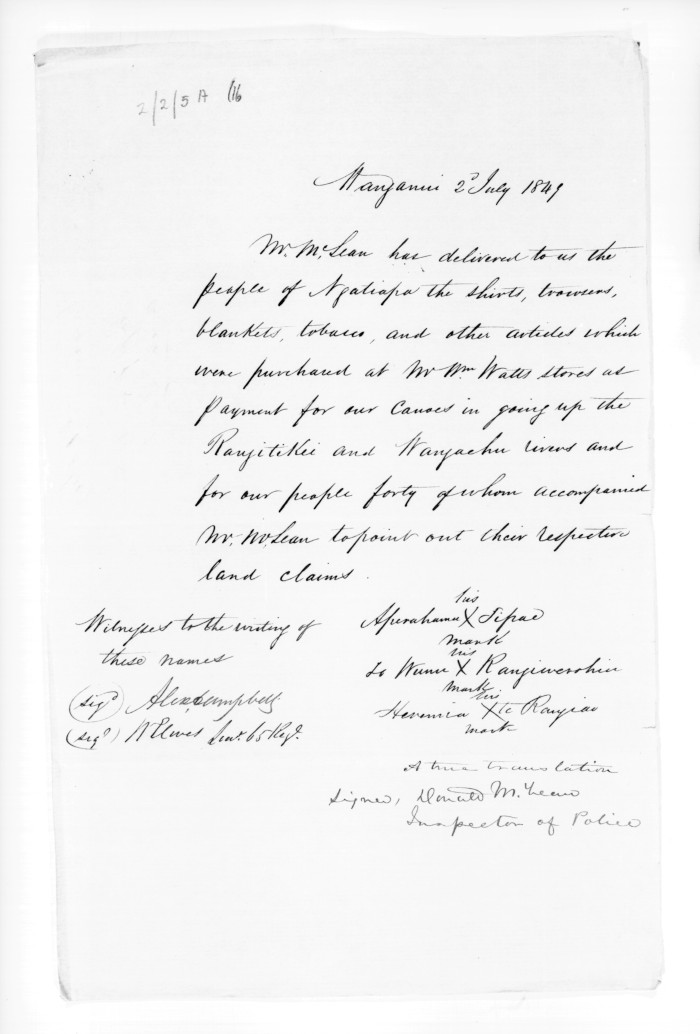 2/2/5A (16
Wanganui 2d July 1849
Mr. McLean has delivered to us the
people of Ngatiapa the shirts, trowsers,
blankets, tobacco, and other articles which
were purchased at Mr Wm Watts stores as
payment for our Canoes in going up the
Rangitikei and Wangaehu rivers and
for our people forty of whom accompanied
Mr. McLean to point out their respective
land claims.
Witnesses to the writing of
these names
(sigd) Alexr Campbell
(sigd) W Elwes 65 Regt.
his
Aperahama X Tipae
mark
his
X
mark
his
X te Rangiao
mark
A true translation
signed, Donald McLean
Inspector of Police